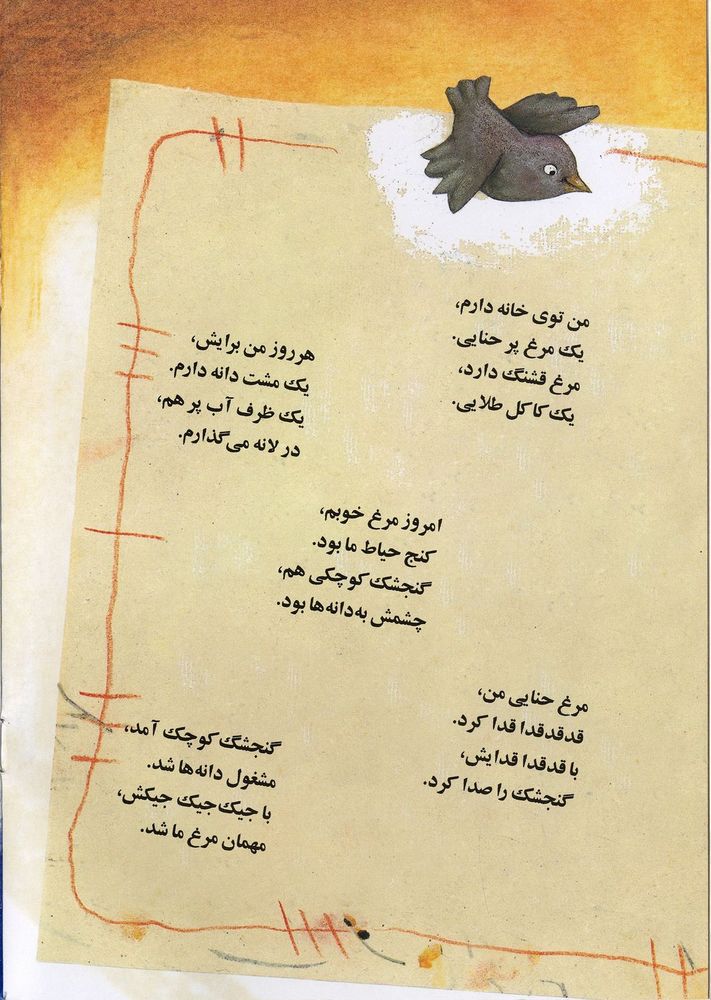 من توی خانه دارم،
یک مرغ پر حنایی.
مرغ قشنگ دارد،
یک کاکل طلایی.
هرروز من برایش،
یک مشت دانه دارم.
یک ظرف آب پر هم،
در لانه می‌گذارم.
امروز مرغ خوبم،
کنج حیاط ما بود.
گنجشک کوچکی هم،
چشمش به‌دانه‌ها بود.
مرغ حنایی من،
قدقدقدا قدا کرد.
با قدقدا قدایش،
گنجشک را صدا کرد.
گنجشگ کوچک آمد،
مشغول دانه‌ها شد.
با جیک‌جیک جیکش،
مهمان مرغ ما شد.